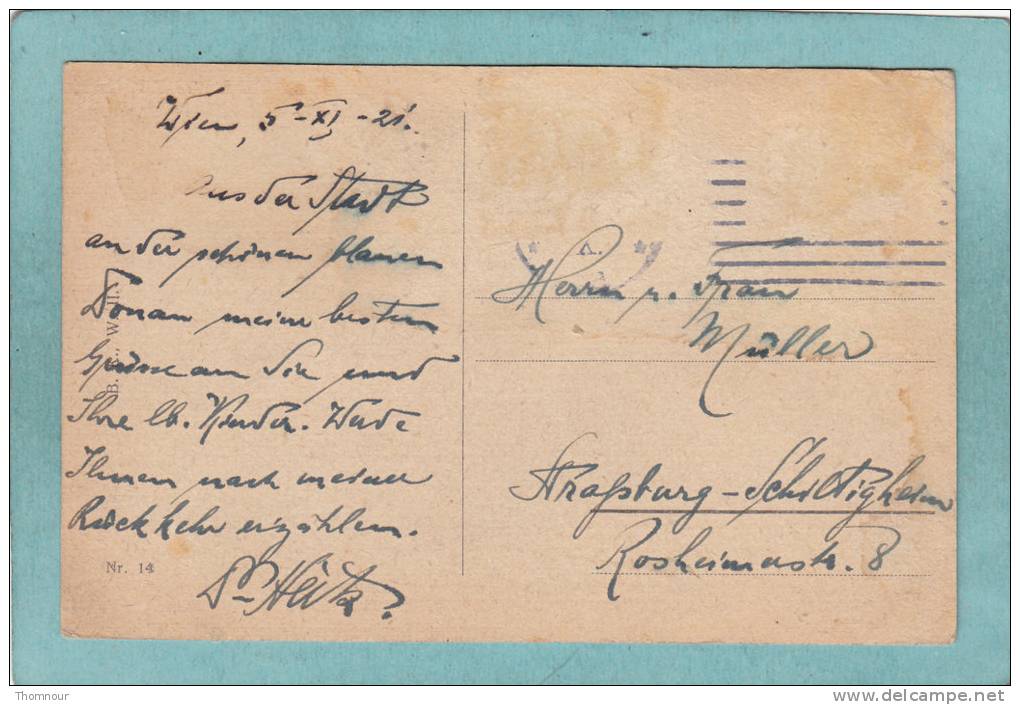 Wien, 5-XI-21.
Aus der Stadt
an der schönen blauen
Donau meine besten
Grüsse an Sie und
Ihre lb. Kinder. Werde
Ihnen nach meiner
Rückkehr erzählen.
Dr
Nr. 14
A.
Herrn u. Frau
Müller
Straßburg-Schiltigheim
Rosheimerstr. 8
Thomnour
www.delcampe.net